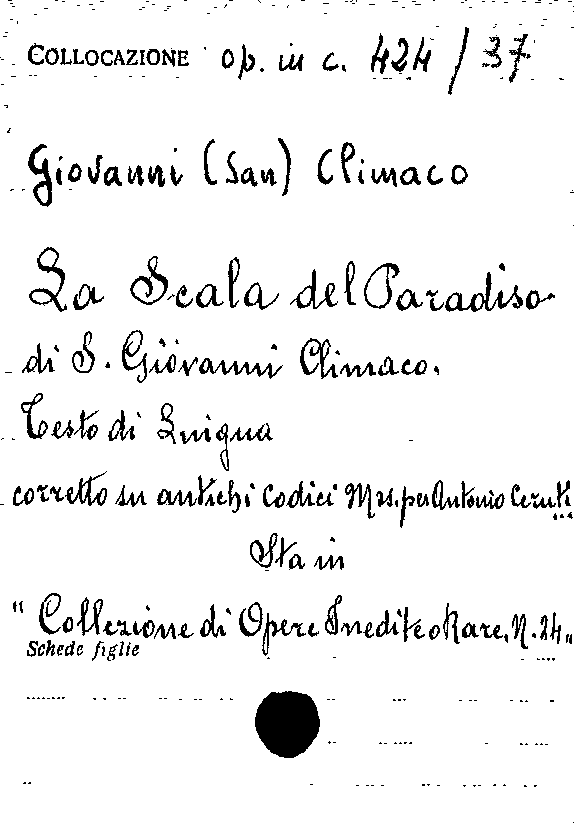 COLLOCAZIONE op. in c. 424/37
Giovanni (San) Climaco
La Scala del Paradiso
di S. Giovanni Climaco.
Testo di Lingua
corretto su antichi codici Mss. per Antonio Ceruti
Sta in
"Collezione di Opere Inedite o Rare, N. 24"
Schede figlie